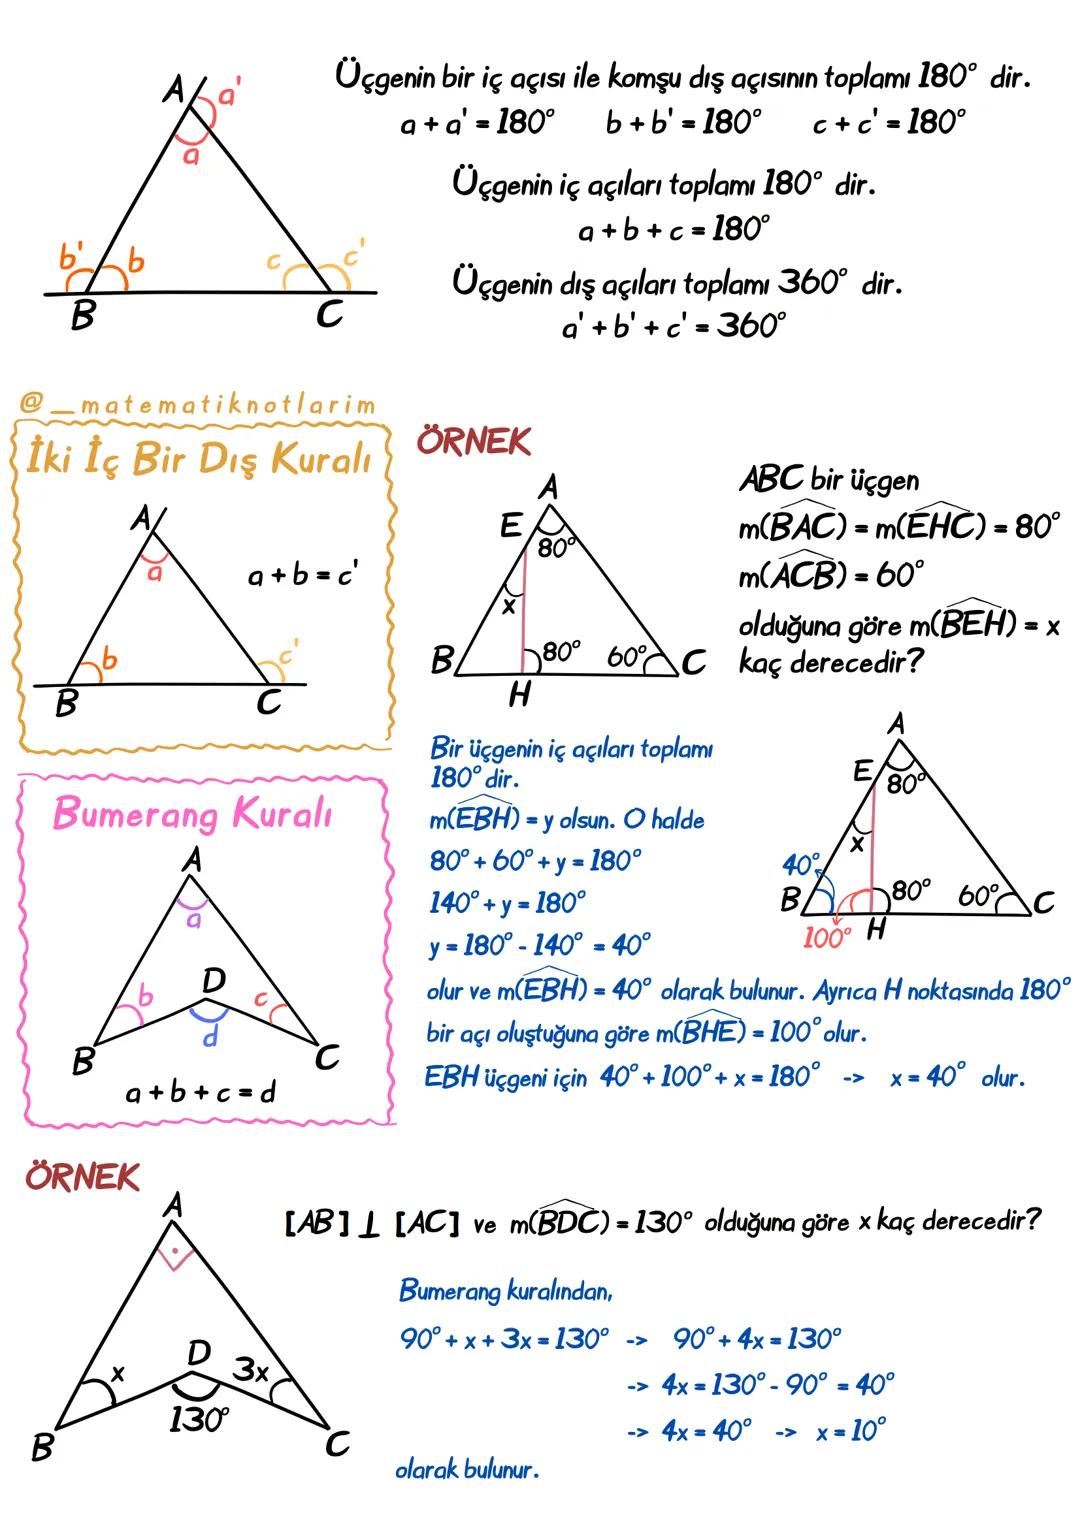 Üçgenin bir iç açısı ile komşu dış açısının toplamı 180° dir.
a + a' = 180° b + b' = 180° c + c' = 180°
Üçgenin iç açıları toplamı 180° dir.
a + b + c = 180°
Üçgenin dış açıları toplamı 360° dir.
a' + b' + c' = 360°
A a'
a
b' b c c'
B C
@_matematiknotlarim
İki İç Bir Dış Kuralı
A
a
a + b = c'
b c'
B C
Bumerang Kuralı
A
a
D
b c
d
B C
a + b + c = d
ÖRNEK
A
E
80°
x
B 80° 60° C
H
ABC bir üçgen
m(BAC) = m(EHC) = 80°
m(ACB) = 60°
olduğuna göre m(BEH) = x
kaç derecedir?
Bir üçgenin iç açıları toplamı
180° dir.
m(EBH) = y olsun. O halde
80° + 60° + y = 180°
140° + y = 180°
y = 180° - 140° = 40°
A
E 80°
x
40°
B 80° 60° C
100° H
olur ve m(EBH) = 40° olarak bulunur. Ayrıca H noktasında 180°
bir açı oluştuğuna göre m(BHE) = 100° olur.
EBH üçgeni için 40° + 100° + x = 180° -> x = 40° olur.
ÖRNEK
A
D
x 3x
130°
B C
[AB] ⊥ [AC] ve m(BDC) = 130° olduğuna göre x kaç derecedir?
Bumerang kuralından,
90° + x + 3x = 130° -> 90° + 4x = 130°
-> 4x = 130° - 90° = 40°
-> 4x = 40° -> x = 10°
olarak bulunur.